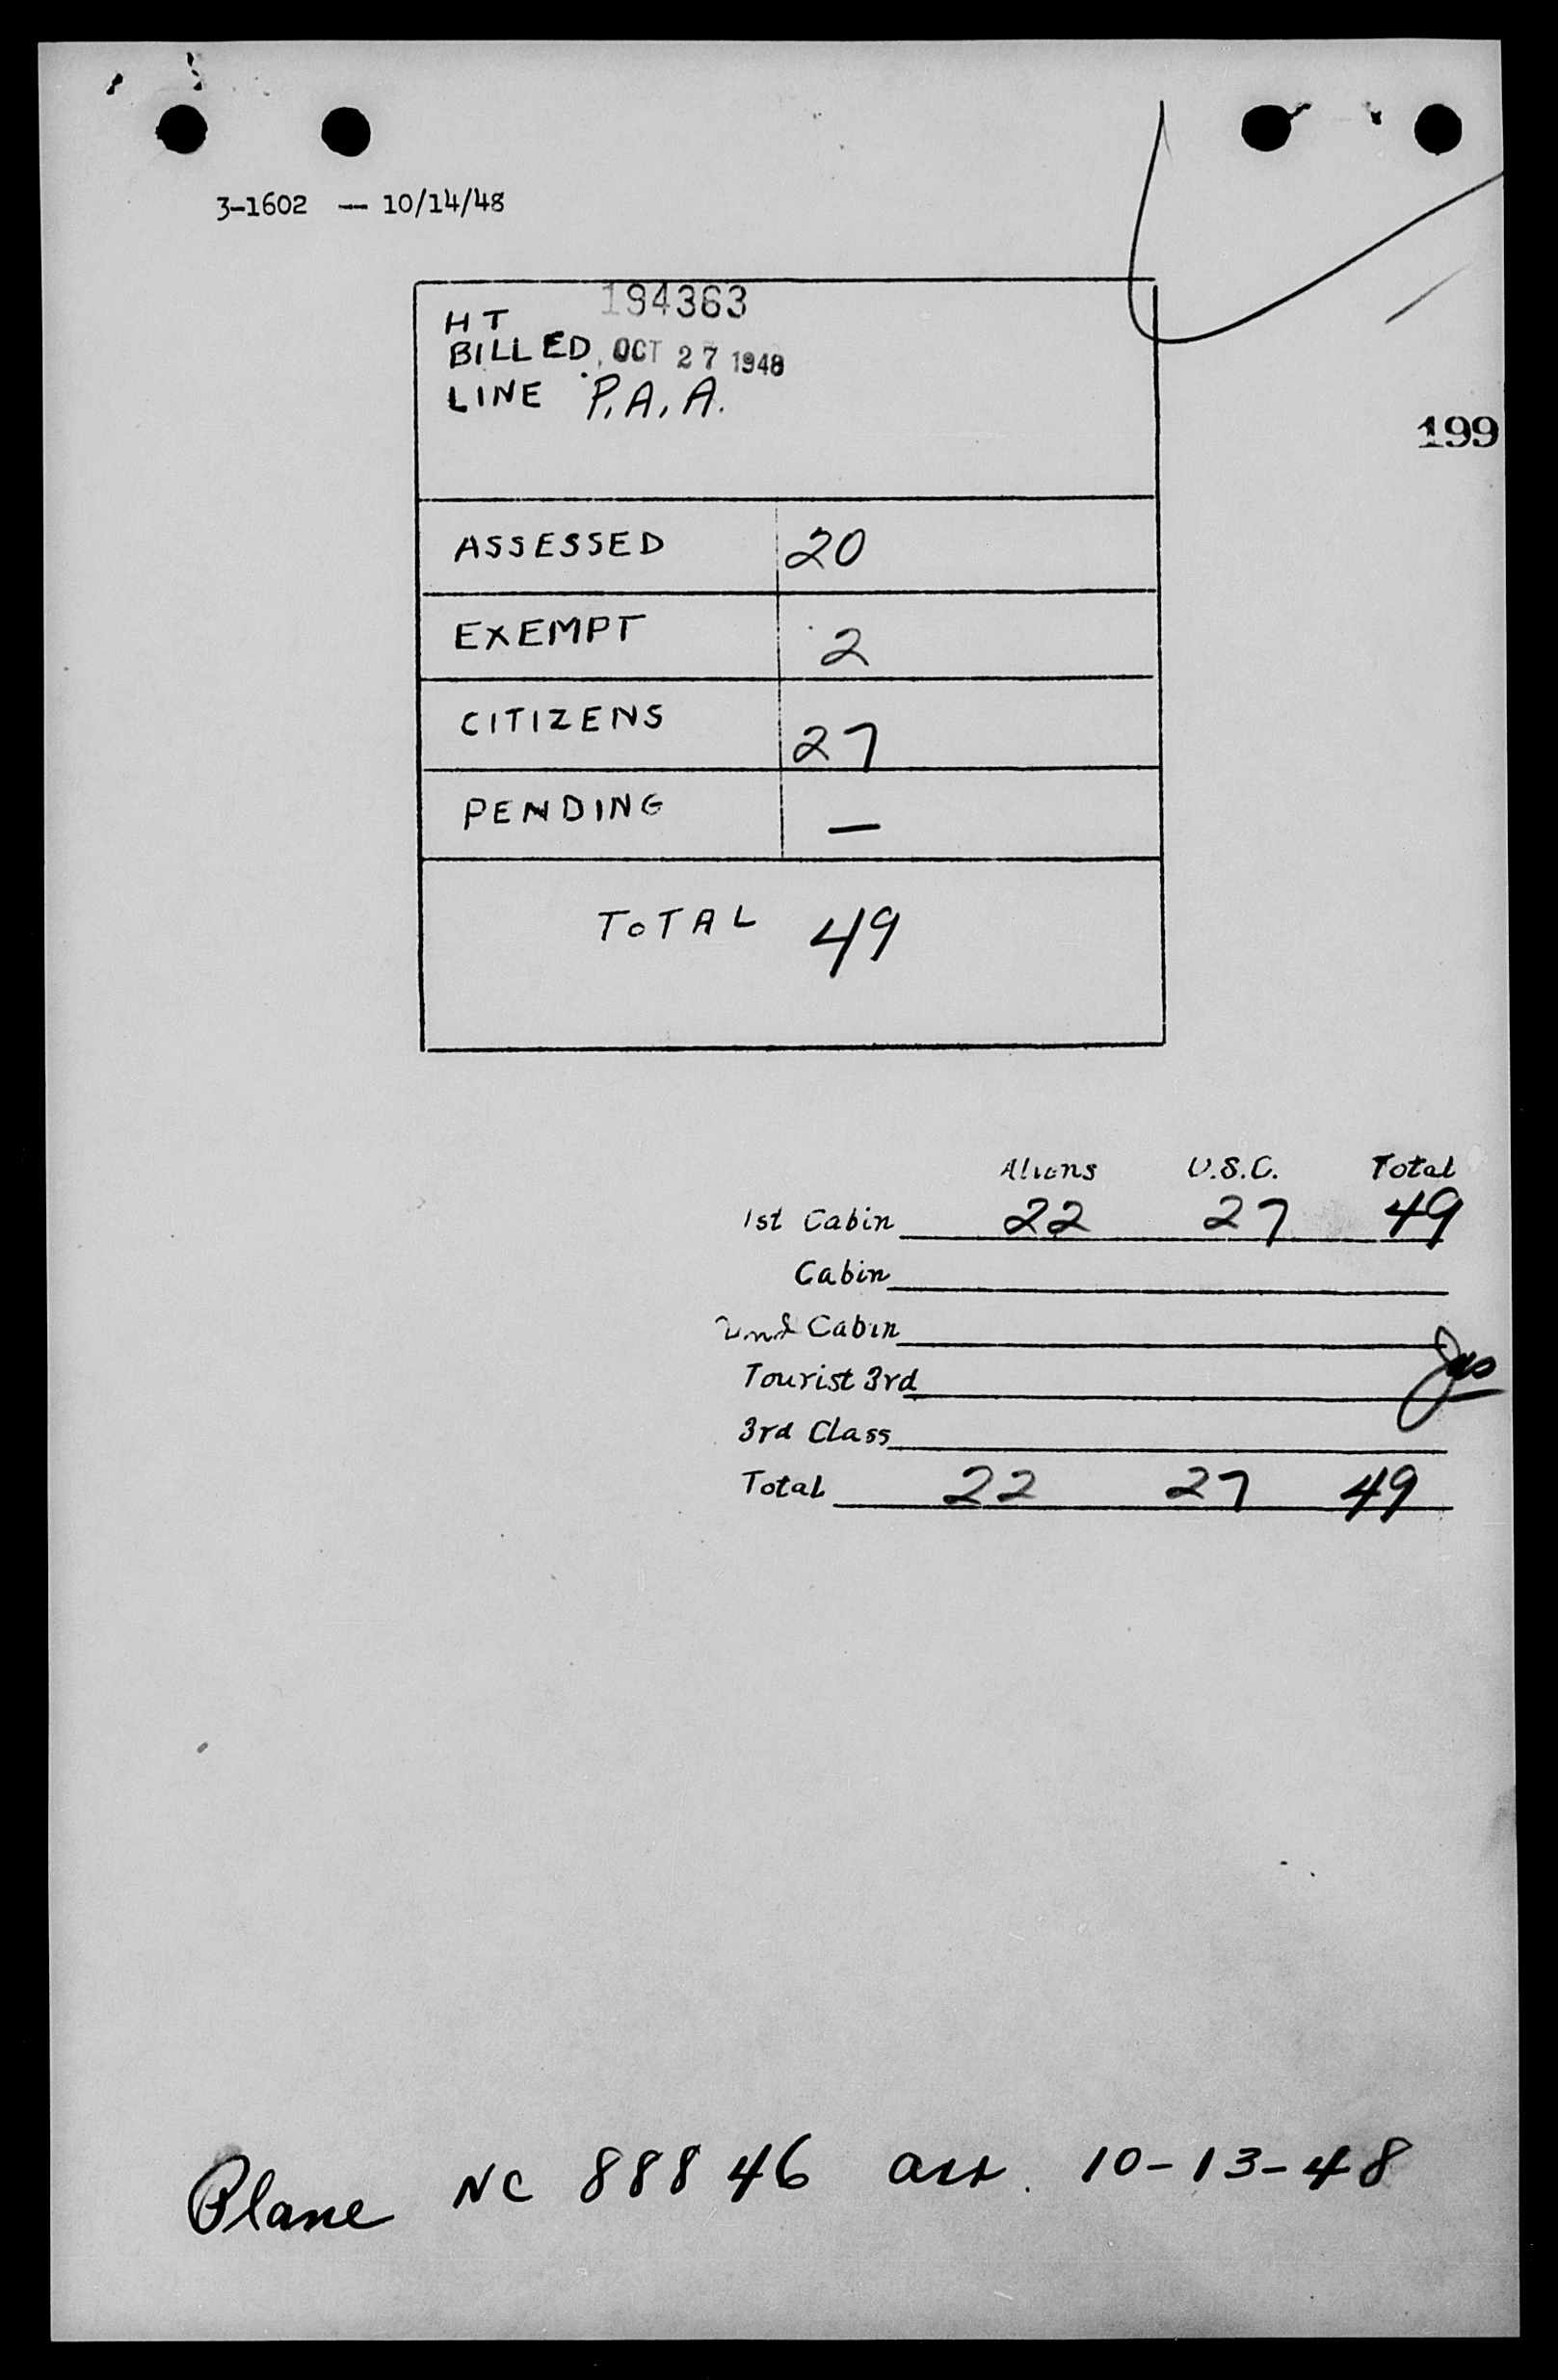 3-1602 — 10/14/48
194363
HT
BILLED OCT 27 1948
LINE P.A.A.
199
ASSESSED 20
EXEMPT 2
CITIZENS 27
PENDING —
TOTAL 49
Aliens U.S.C. Total
1st Cabin 22 27 49
Cabin
2nd Cabin
Tourist 3rd
3rd Class
Total 22 27 49
Plane NC 88846 arr. 10-13-48